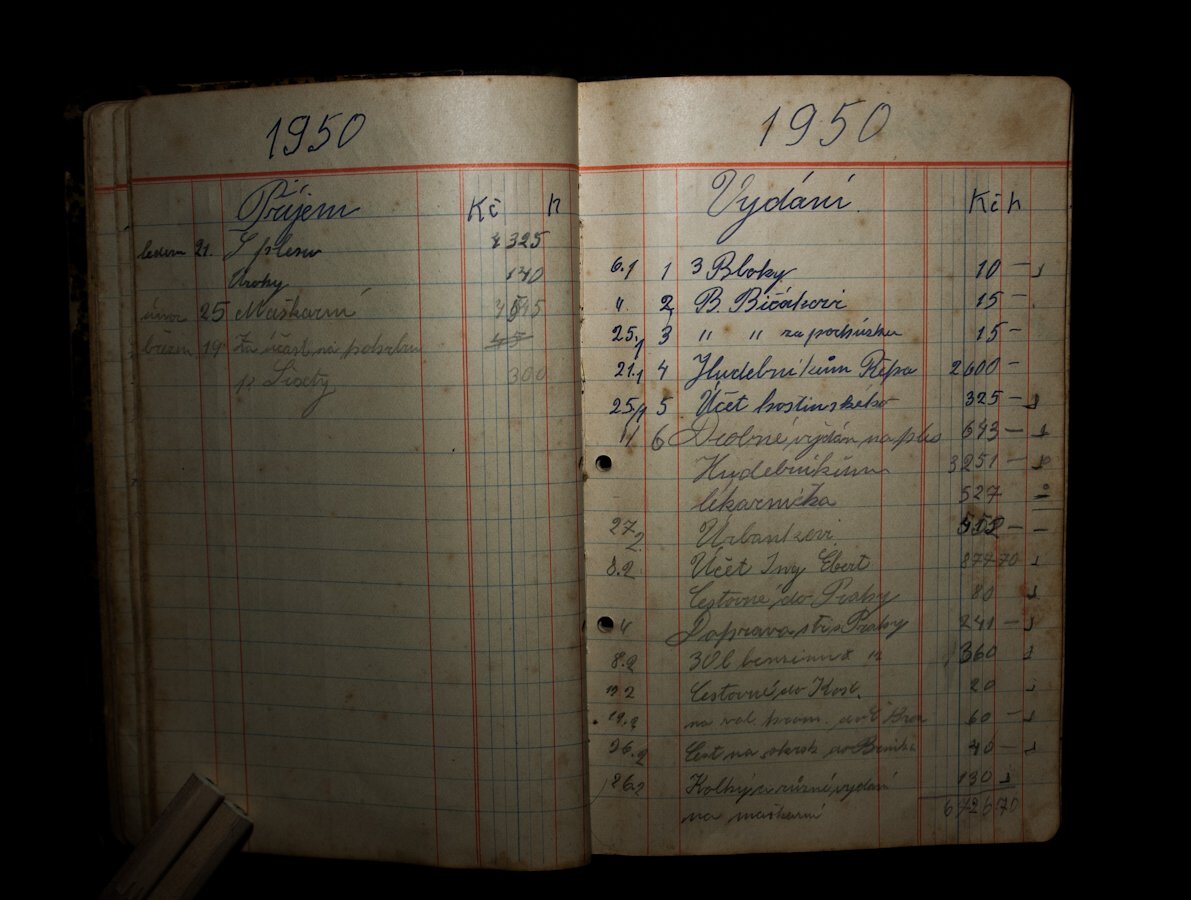 1950
Příjem Kč h
leden 21. Z plesu 4325
Úroky 140
únor 25 Maškarní
březen 19 Za účast na pohřbu 45
p. 300
1950
Vydání Kč h
6.1 1 3 Bloky 10 —
" 2 B. Bičákovi 15 —
25./1 3 " " za pochůzku 15 —
21.1 4 Hudebníkům Řepa 2600 —
25/1 5 Účet hostinského 325 —
6 Drobné vydán. na ples 643 —
Hudebníkům 3251 —
lékarnička 527
27.2. Urbankovi
8.2 Účet Ing Ebert 874 70
Cestovné do Prahy 80
" Doprava stř. z Prahy 241 —
8.2 30 l benzinu " 360
2 Cestovné do Kost. 20
19.2 na val. hrom. do Č. 60 —
26.2 Cest na okrsk do 40 —
26.2 Kolky a různé vydání 130
na maškarní